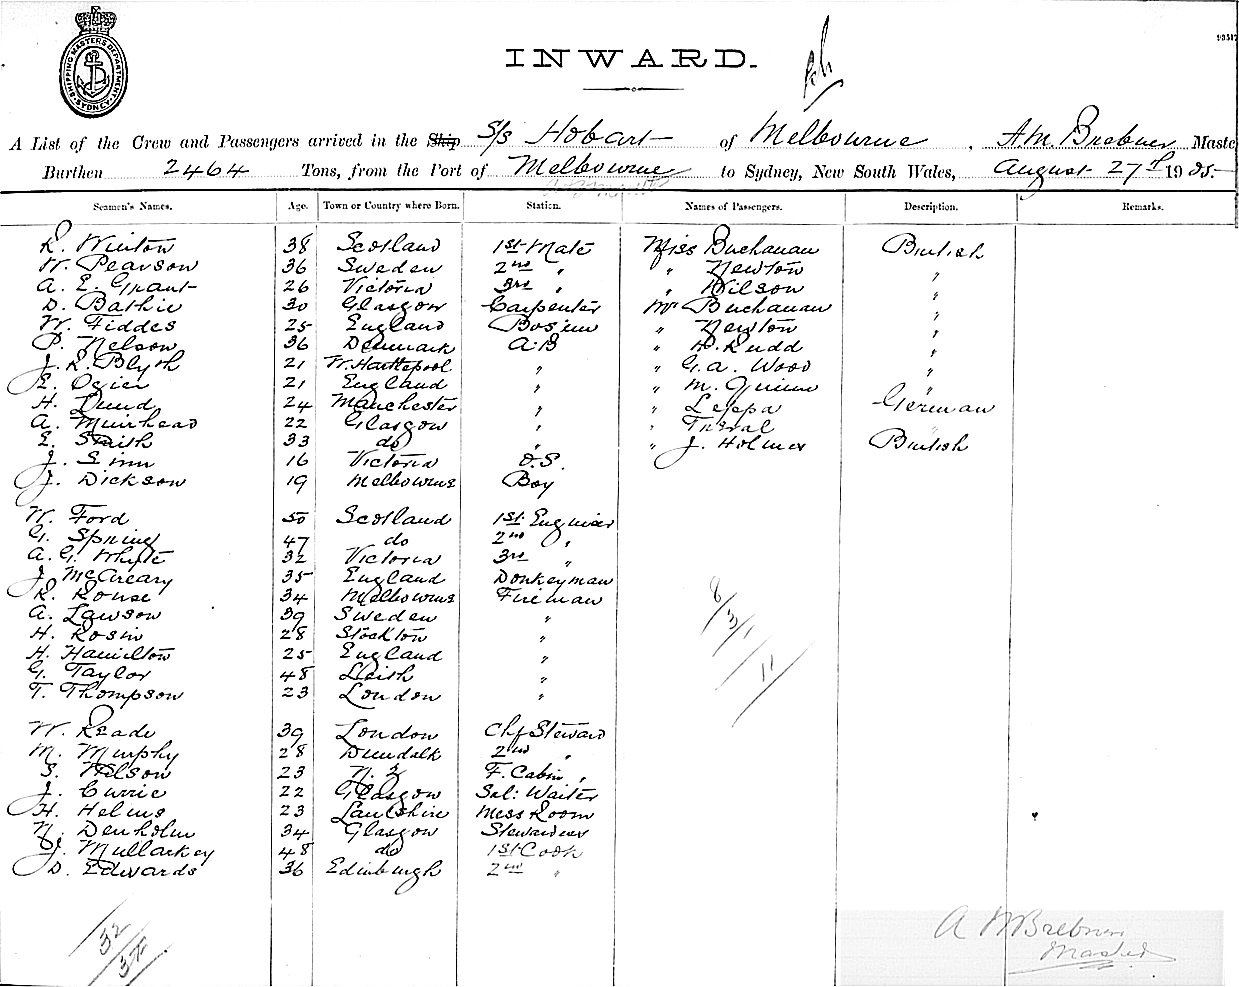 SHIPPING MASTERS DEPARTMENT SYDNEY
INWARD.
A List of the Crew and Passengers arrived in the Ship S/s Hobart of Melbourne, A.M. Brebner Maste
Burthen 2464 Tons, from the Port of Melbourne to Sydney, New South Wales, August 27th 1905.
Seamen's Names. Age. Town or Country where Born. Station. Names of Passengers. Description. Remarks.
R. Winton 38 Scotland 1st Mate Miss Buchanan British
W. Pearson 36 Sweden 2nd " " Newton "
A. E. Grant 26 Victoria 3rd " " Wilson "
D. Bathie 30 Glasgow Carpenter Mr Buchanan "
W. Fiddes 25 England Bosjun " Newton "
P. Nelson 36 Denmark A.B " Rudd "
J. R. Blyth 21 W. Hartlepool " " G. A. Wood "
E. Ogier 21 England " " M. Quinn "
H. Lund 24 Manchester " " Leppa German
A. Muirhead 22 Glasgow " " "
E. Smith 33 do " " J. Holmes British
J. Sinn 16 Victoria O.S.
J. Dickson 19 Melbourne Boy
W. Ford 50 Scotland 1st Engineer
G. Spring 47 do 2nd "
A. G. Whyte 32 Victoria 3rd "
J. McCreary 35 England Donkeyman
R. Rouse 34 Melbourne Fireman
A. Lawson 39 Sweden "
H. Rosin 28 Stockton "
H. Hamilton 25 England "
G. Taylor 48 Leith "
T. Thompson 23 London "
W. Reade 39 London Chf Steward
M. Murphy 28 Dundalk 2nd "
S. Wilson 23 N. Z F. Cabin "
J. Currie 22 Glasgow Sal: Waiter
H. Helms 23 Mess Room
N. Denholm 34 Glasgow Stewardess
J. Mullarkey 48 do 1st Cook
D. Edwards 36 Edinburgh 2nd "
8/3/11
32
A M Brebner
Master